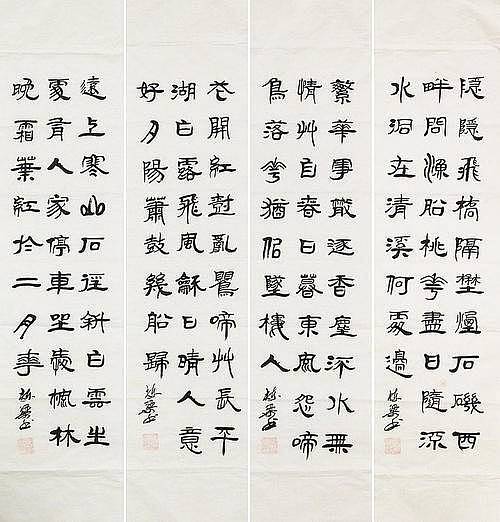 隱隱飛橋隔埜煙石磯西
畔問漁船桃華盡日隨流
水洞在清溪何處邊
繁華事散逐香塵流水無
情艸自春日暮東風怨啼
鳥落華猶似墜樓人
花開紅樹亂鶯啼艸長平
湖白鷺飛風龢日晴人意
好夕陽簫鼓幾船歸
遠上寒山石徑斜白雲生
處有人家停車坐愛楓林
晚霜葉紅於二月華